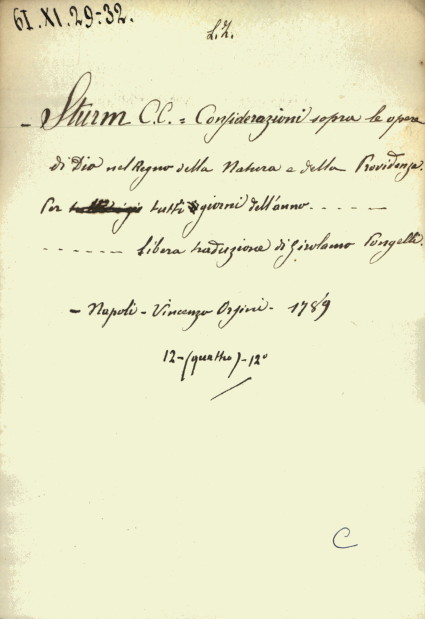 61. XI. 29-32.
L.Z.
- Sturm C.C. = Considerazioni sopra le opere
di Dio nel Regno della Natura e della Providenza.
Per tutti giorni dell'anno - - - - -
- - - - - - Libera traduzione di Girolamo Pongelli.
- Napoli - Vincenzo Orsini - 1789
12-(quattro)-12°
C